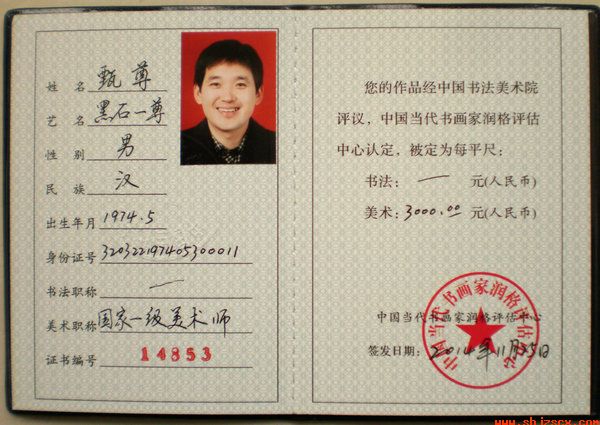 姓 名 甄尊
艺 名 黑石一尊
性 别 男
民 族 汉
出生年月 1974.5
身份证号 320322197405300011
书法职称 一
美术职称 国家一级美术师
证书编号 14853
您的作品经中国书法美术院
评议，中国当代书画家润格评估
中心认定，被定为每平尺：
书法： 一 元(人民币)
美术：3000.00 元(人民币)
中国当代书画家润格评估中心
签发日期：2014年11月25日
中国当代书画家润格评估中心
www.shjzscx.com